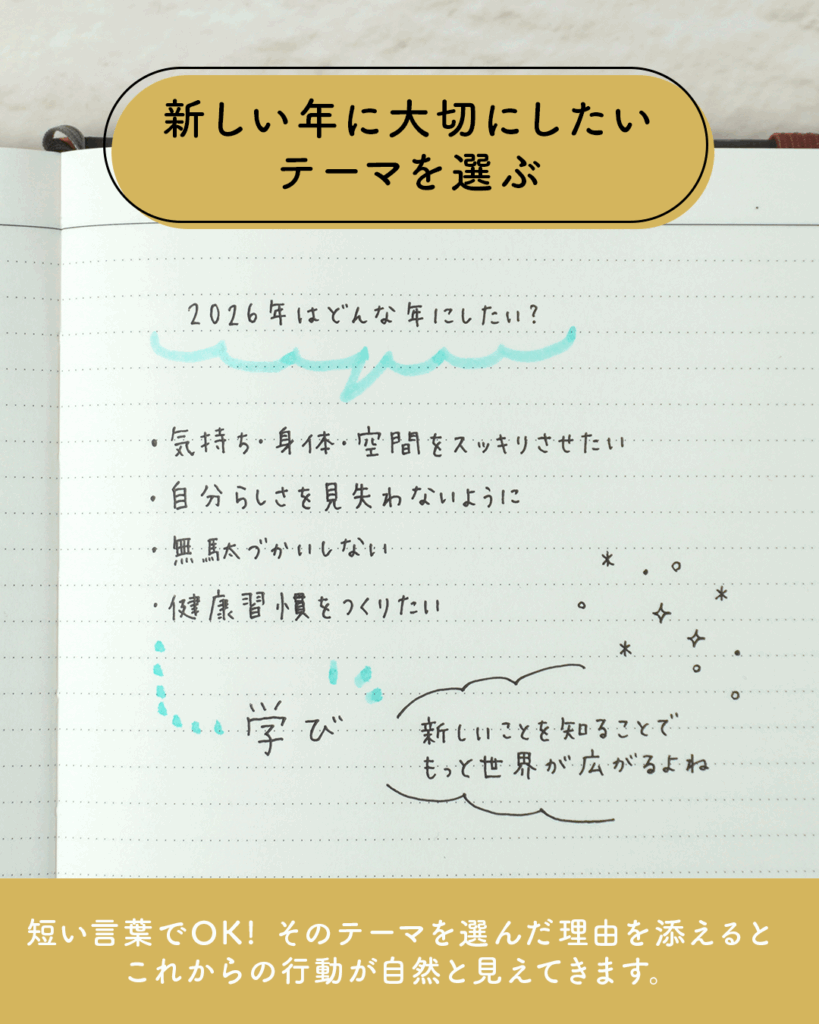 新しい年に大切にしたい
テーマを選ぶ
2026年はどんな年にしたい?
・気持ち・身体・空間をスッキリさせたい
・自分らしさを見失わないように
・無駄づかいしない
・健康習慣をつくりたい
学び
新しいことを知ることで
もっと世界が広がるよね
短い言葉でOK! そのテーマを選んだ理由を添えると
これからの行動が自然と見えてきます。